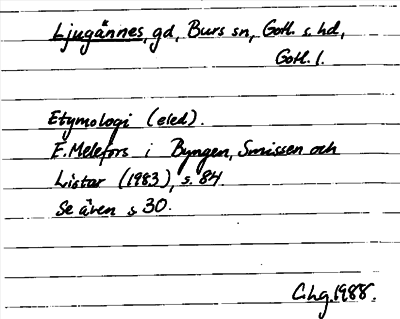 Ljugännes, gd, Burs sn, Gotl. s. hd,
Gotl. l.
Etymologi (eled).
E. Melefors i Byngen, Smissen och
Listar (1983), s. 84.
Se även s 30.
C.hg. 1988.